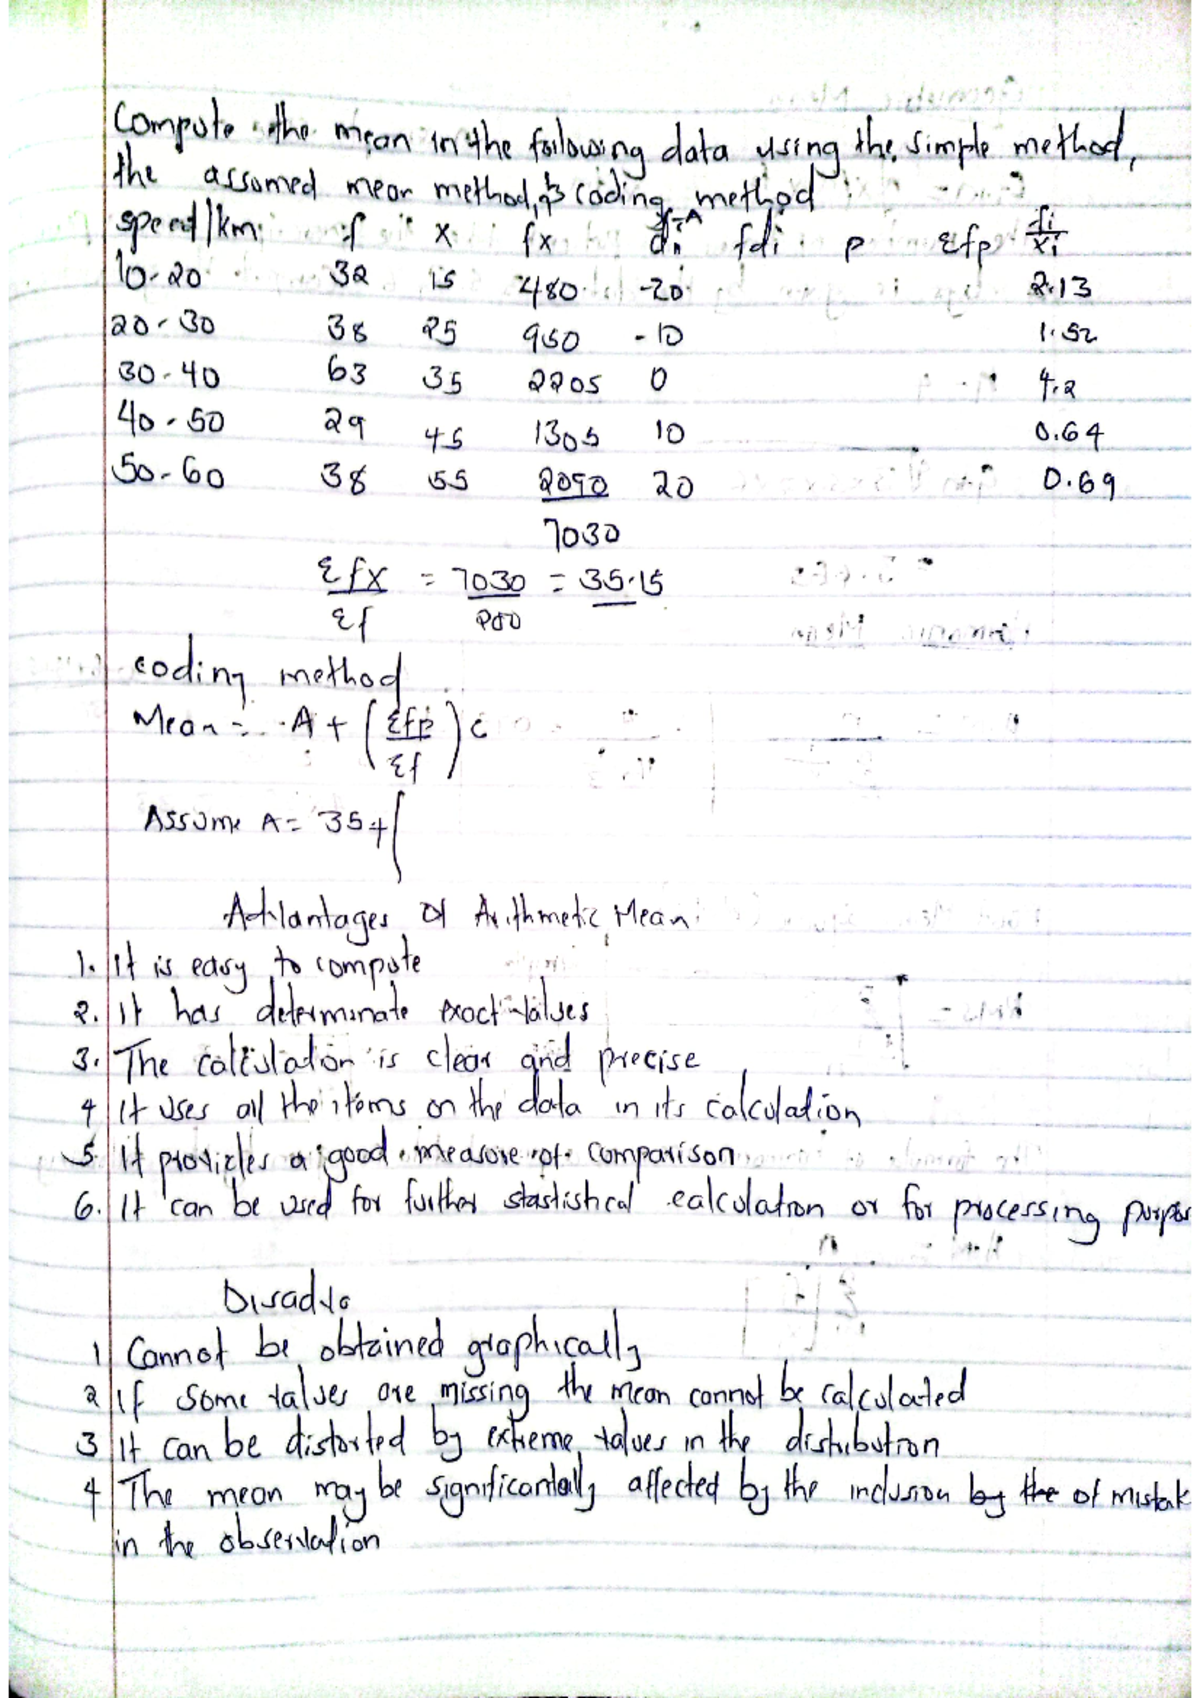 Compute the mean in the following data using the simple method,
the assumed mean method, & coding method
speed/km f x fx di=x-A fdi p Σfp fi/xi
10-20 32 15 480 -20 2.13
20-30 38 25 950 -10 1.52
30-40 63 35 2205 0 4.2
40-50 29 45 1305 10 0.64
50-60 38 55 2090 20 0.69
7030
Σfx/Σf = 7030/200 = 35.15
coding method
Mean = A + (Σfp/Σf) c
Assume A = 35 + (
Advantages of Arithmetic Mean
1. It is easy to compute
2. It has determinate exact values
3. The calculation is clear and precise
4 It uses all the items on the data in its calculation
5. It provides a good measure of comparison
6. It can be used for further stastistical calculation or for processing purpos
Disadva
1 Cannot be obtained graphically
2 If some values are missing the mean cannot be calculated
3 It can be distorted by extreme values in the distribution
4 The mean may be significantally affected by the inclusion by the of mistak
in the observation